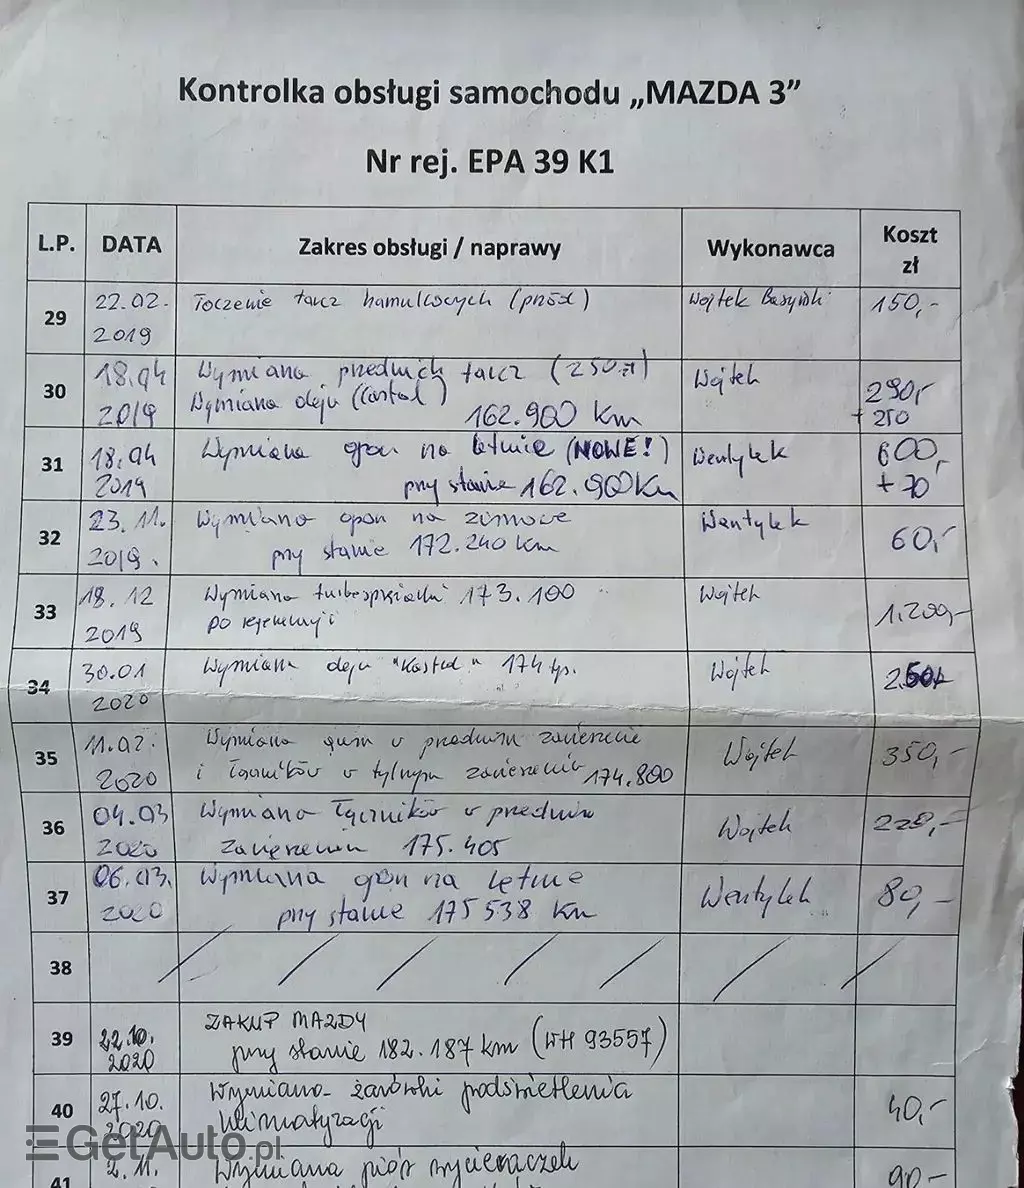 Kontrolka obsługi samochodu „MAZDA 3”
Nr rej. EPA 39 K1
L.P. DATA Zakres obsługi / naprawy Wykonawca Koszt zł
29 22.02. 2019 Toczenie tarcz hamulcowych (przód) Wojtek 150,-
30 18.04 2019 Wymiana przednich tarcz (250 zł) Wojtek 290,- + 250
Wymiana oleju (Castrol) 162.900 km
31 18.04 2019 Wymiana opon na letnie (NOWE!) Wentylek 600,- + 70
przy stanie 162.900 km
32 23.11. 2019. Wymiana opon na zimowe Wentylek 60,-
przy stanie 172.240 km
33 18.12 2019 Wymiana turbosprężarki 173.100 Wojtek 1.200,-
po regeneracji
34 30.01 2020 Wymiana oleju "Kastrol" 174 tys. Wojtek
35 11.02. 2020 Wymiana gum w przednim zawieszenie Wojtek 350,-
i łączników w tylnym zawieszeniu 174.800
36 04.03 2020 Wymiana łączników w przednim Wojtek 220,-
zawieszeniu 175.405
37 06.03. 2020 Wymiana opon na letnie Wentylek 80,-
przy stanie 175538 km
38 / / / / / / /
39 22.10. 2020 ZAKUP MAZDY
przy stanie 182.187 km (WH 93557)
40 27.10. 2020 Wymiana żarówki podświetlenia 40,-
klimatyzacji
41 2.11. Wymiana piór wycieraczek 90,-
GetAuto.pl